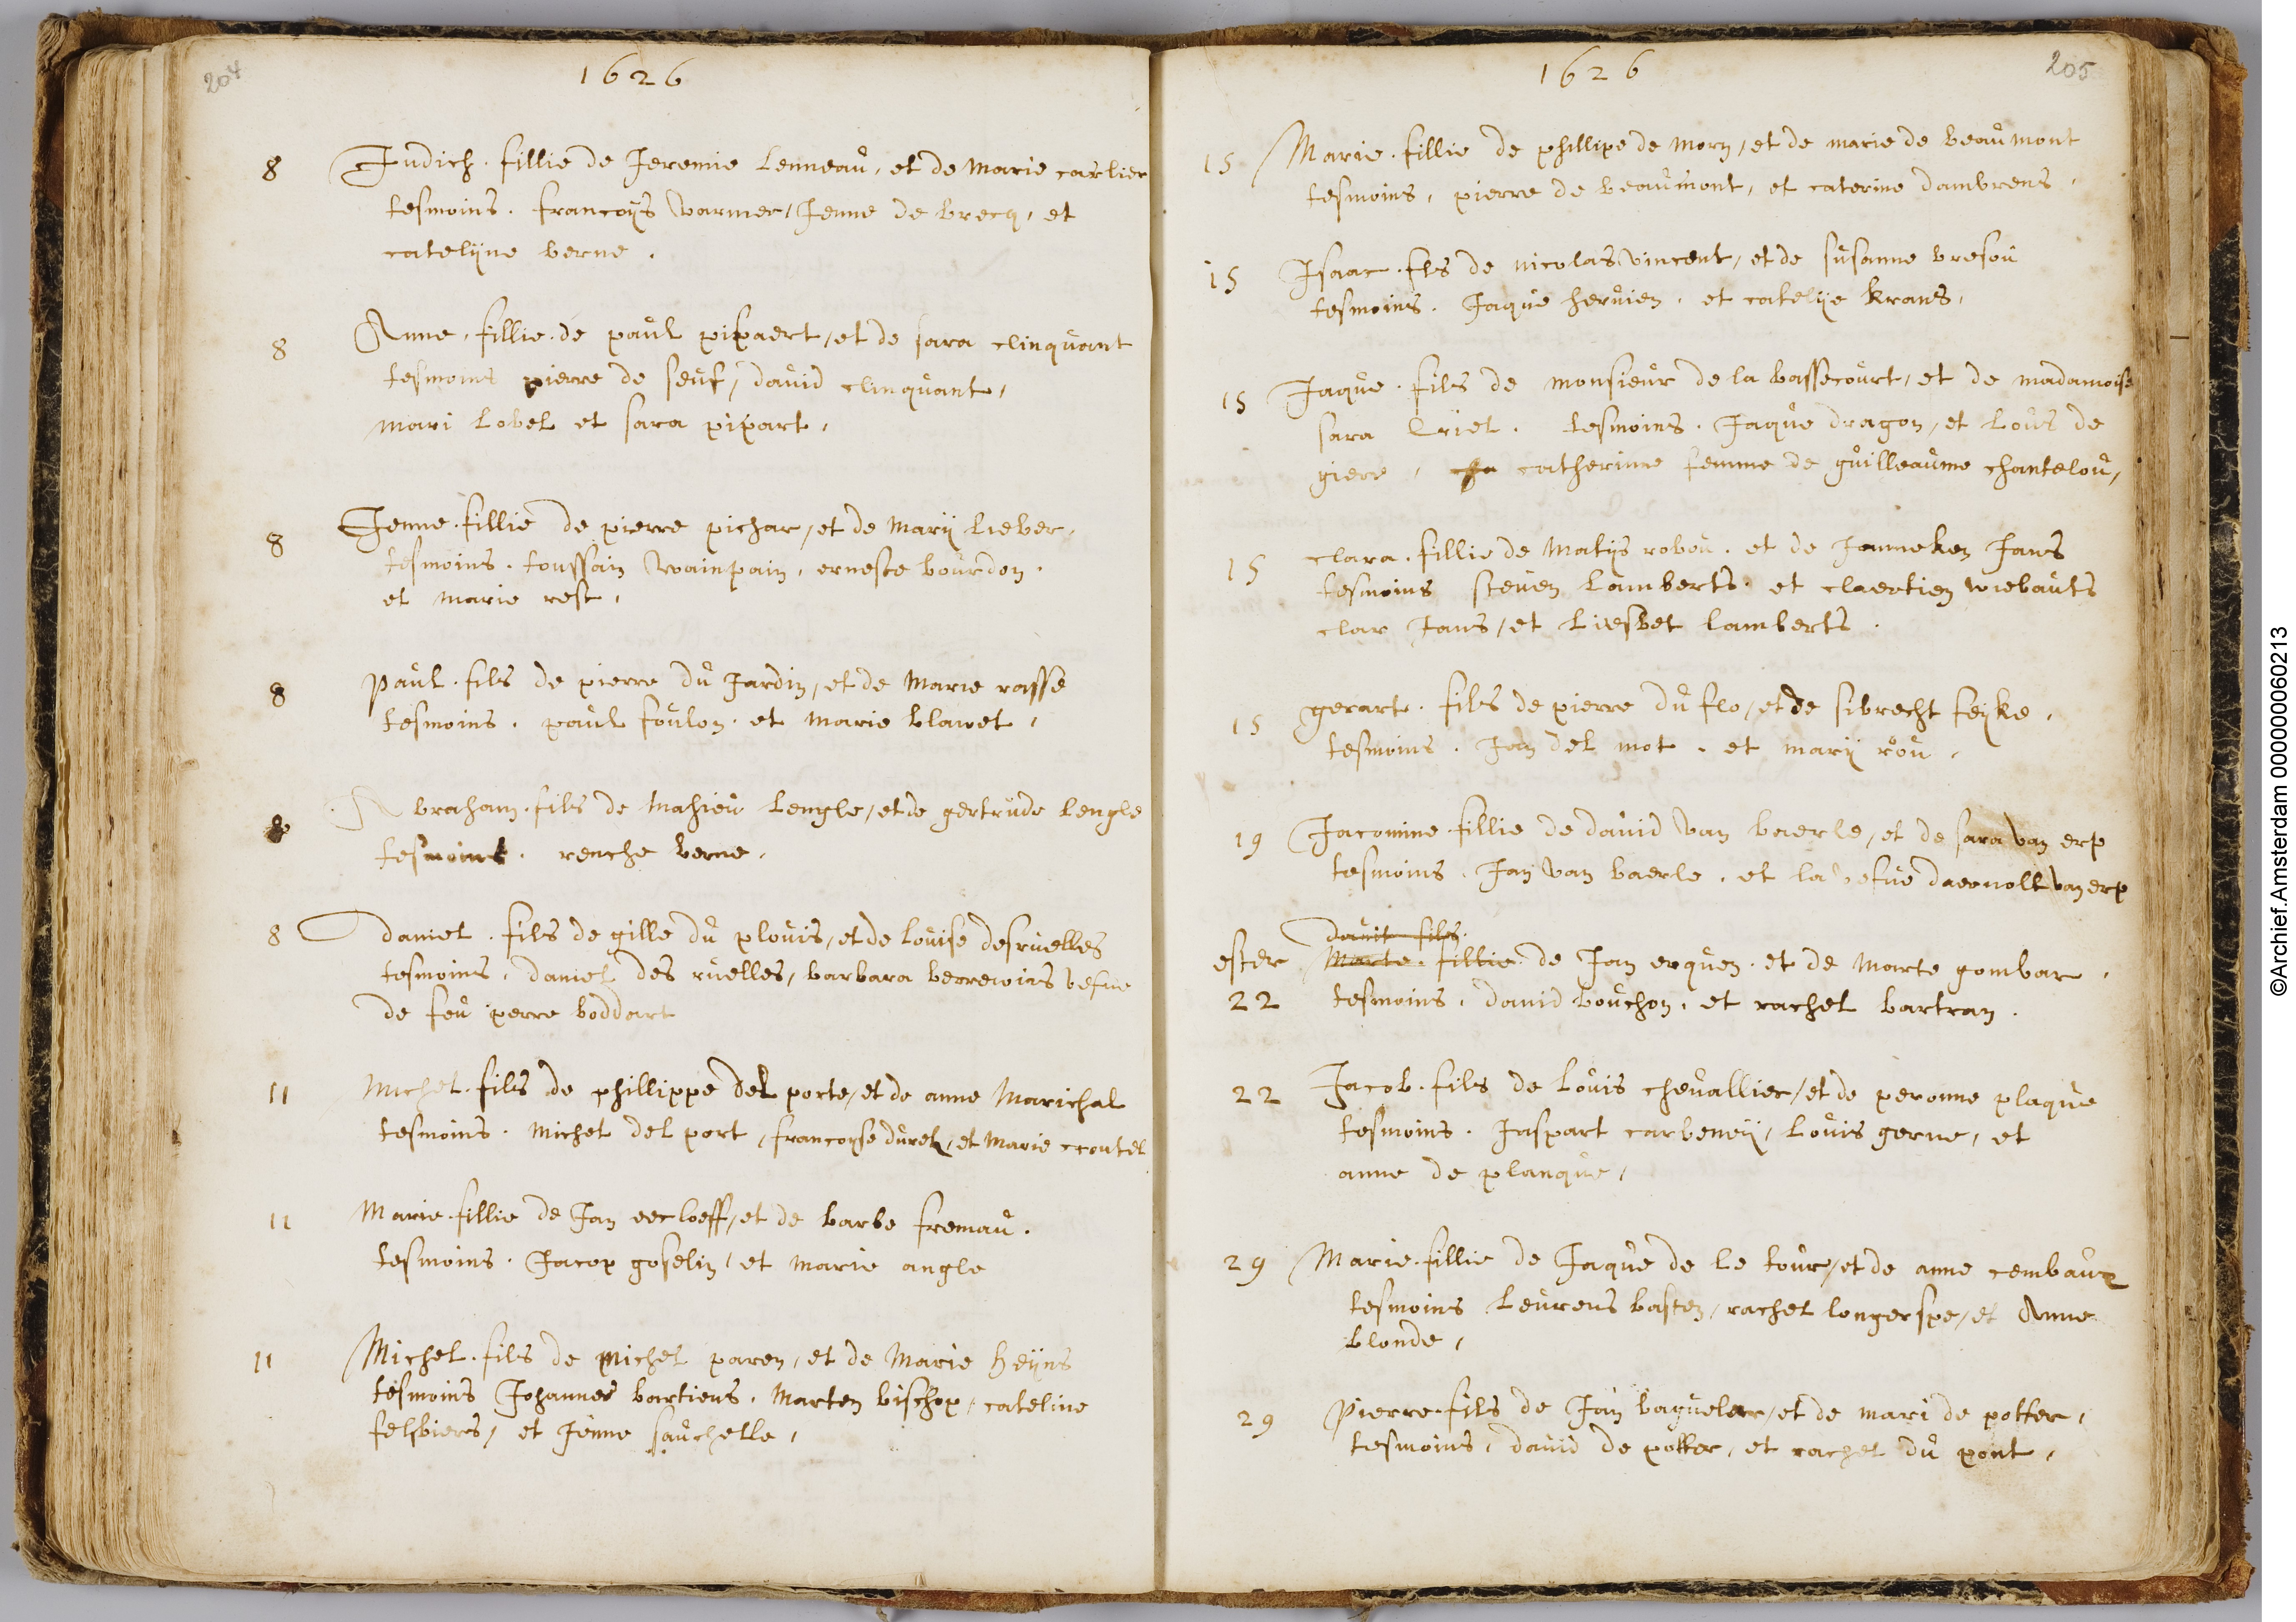 204
1626
8 Judich. fillie de Jeremie Lenneau, et de Marie carlier
tesmoins. francoijs varmer, Jenne de brecq, et
catelijne berne.
8 Anne, fillie de paul pipaert, et de sara clinquant
tesmoins pierre de seuf, david clinquant,
mari Lobel et sara pipart,
8 Jenne. fillie de pierre pichar, et de Marij Lieber,
tesmoins. toussain Wainpain, erneste bourdon.
et marie rest,
8 Paul. fils de pierre du Jardin, et de Marie rasse
tesmoins. paul foulon. et marie blawet,
8 Abraham. fils de Mahieu Lengle, et de gertrude Lengle
tesmoins. renche berne,
8 daniel. fils de gille du plouis, et de Louise desruelles
tesmoins, daniel des ruelles, barbara berrewins vefue
de feu perre boddart
11 Michel. fils de phillippe del porte, et de anne Marichal
tesmoins. Michel del port, francoyse durel, et Marie croutel
11 Marie. fillie de Jan eecloeff, et de barbe fremau.
tesmoins. Jacop goselin, et marie angle
11 Michel. fils de Michel paren, et de Marie Heijns
tesmoins Johannes bartiens, Marten bischop, cateline
felbiers, et Jenne sauchelle,
1626
205
15 Marie. fillie de phillipe de Morn, et de marie de beaumont
tesmoins, pierre de beaumont, et caterine dambrens,
15 Isaac. fils de nicolas vincent, et de susanne bresou
tesmoins. Jaque heruien, et catelije krans,
15 Jaque. fils de monsieur de la bassecourt, et de madamoise
sara Criet. tesmoins. Jaque dragon, et Louis de
giere, catherinne femme de guilleaume chantelou,
15 clara. fillie de Matijs robou. et de Janneken Jans
tesmoins steuen Lamberts. et claertien wiebauts
clar Jans, et Liesbet lamberts.
15 gerart. fils de pierre du flo, et de sibrecht feijke,
tesmoins. Jan del mot. et marij rou,
19 Jacomine fillie de david van baerle, et de sara van erp
tesmoins. Jan van baerle, et la vefue daernolt van erp
davit fils.
ester Marte. fillie de Jan erquen. et de Marte gombar,
22 tesmoins, david bouchon, et rachel bartran.
22 Jacob. fils de Louis chevallier, et de peronne plaque
tesmoins. Jaspart carbeneij, Louis gerne, et
anne de planque,
29 Marie. fillie de Jaque de le tour, et de anne cembaux
tesmoins Leurens basten, rachel longerspe, et Anne
blonde,
29 Pierre. fils de Jan baguelar, et de mari de potter,
tesmoins, david de potter, et rachel du pont,
©Archief.Amsterdam 000000060213